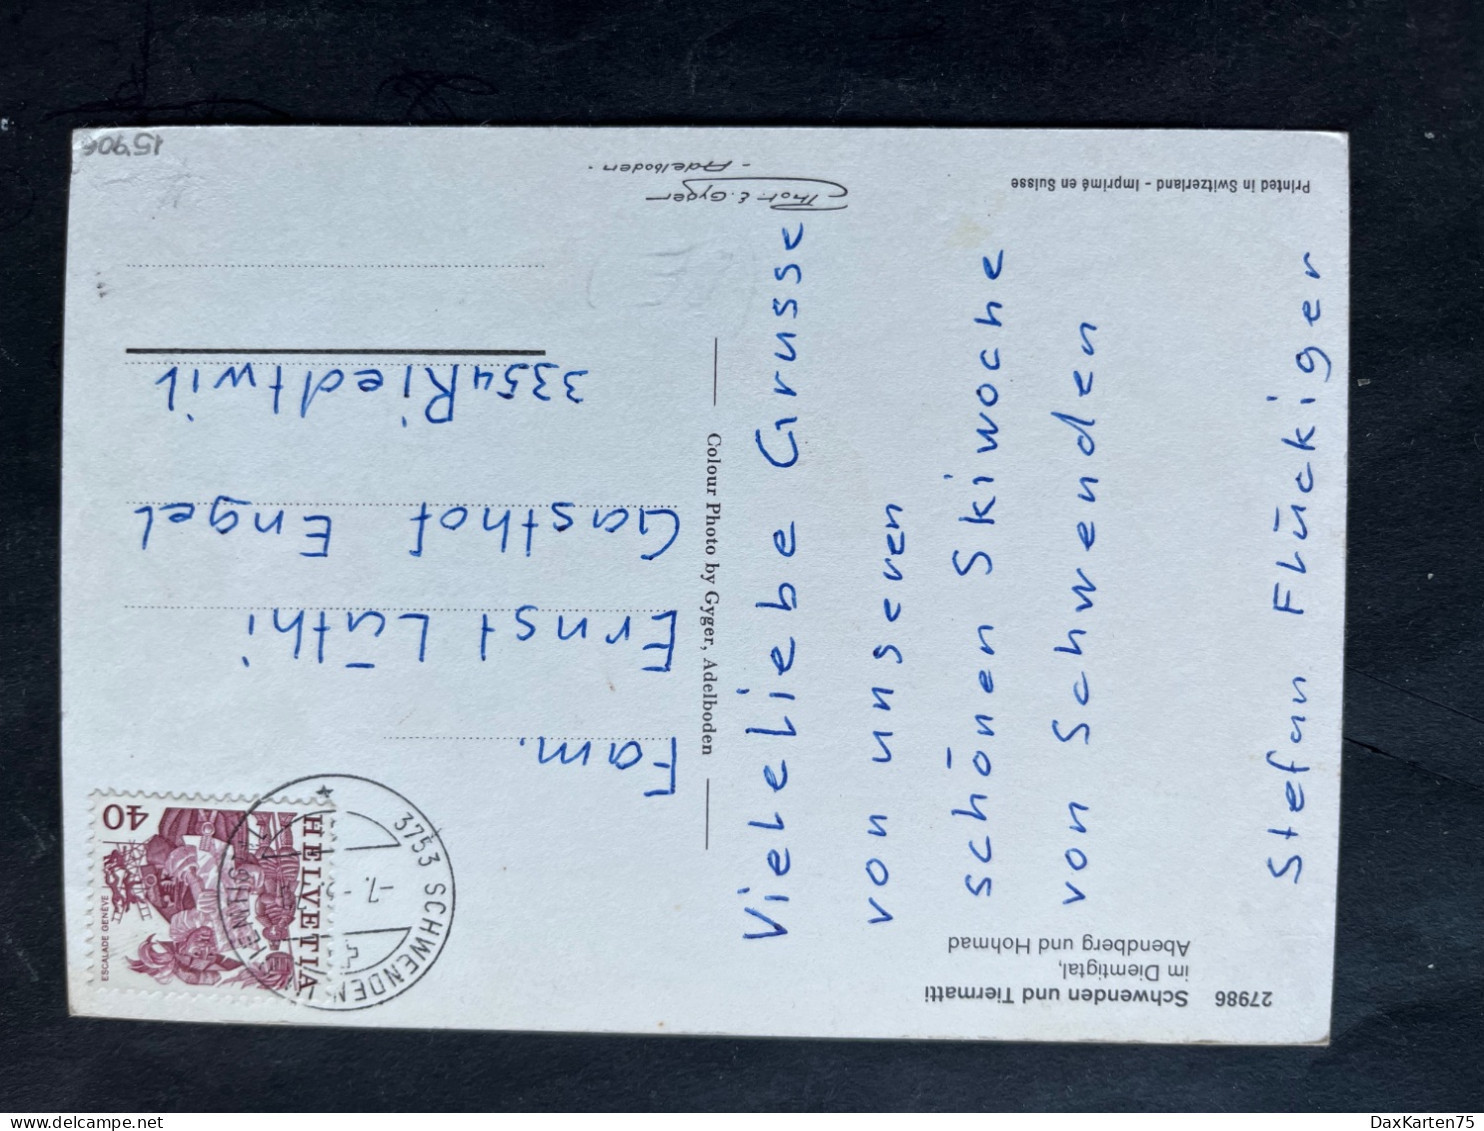 27986 Schwenden und Tiermatti
im Diemtigtal,
Abendberg und Hohmad
Viele liebe Grusse
von unseren
schönen Skiwoche
von Schwenden
Stefan Flückiger
Printed in Switzerland - Imprimé en Suisse
Phot. E. Gyger
- Adelboden -
Colour Photo by Gyger, Adelboden
HELVETIA
40
ESCALADE GENÈVE
3753 SCHWENDEN
Fam.
Ernst Lüthi
Gasthof Engel
3354 Riedtwil
DaxKarten75